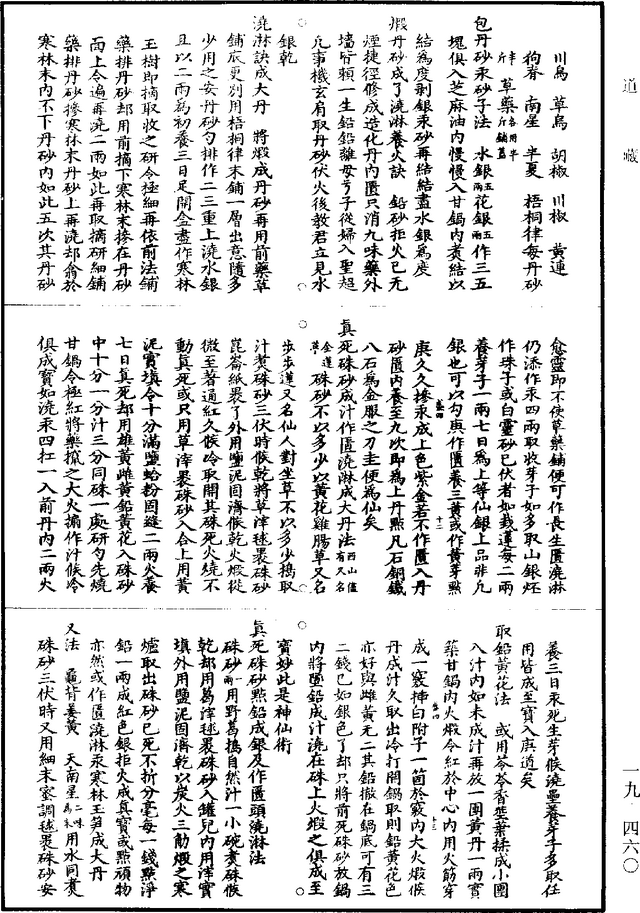 道藏
川烏 草烏 胡椒 川椒 黄連
狗脊 南星 半夏 梧桐律每丹砂
半斤草藥各用半斤鋪蓋
包丹砂汞砂子法 水銀五兩花銀五兩作三五
塊俱入芝麻油内慢慢入甘鍋内煮結以
結為度剥銀汞砂再結結盡水銀為度
煅丹砂成了澆淋養火訣 鉛砂拒火已无
煙捷徑修成造化丹内匱只消九味藥外
墙管頼一生鉛鉛離母兮子從婦入聖超
凡亊機玄肩取丹砂伏火後教君立見水
銀乾
澆淋訣成大丹 將煅成丹砂再用前藥草
鋪底更別用梧桐律末鋪一層出意隨多
少用之安丹砂勻排作二三重上澆水銀
且以二兩為初養三日足開盒盡作寒林
玉樹即摘取收之研令極細再依前法鋪
藥排丹砂却用前摘下寒林末摻在丹砂
面上令遍再澆二兩如此再取摘研細鋪
藥排丹砂摻寒林末丹砂上再澆却翕於
寒林末内不下丹砂内如此五次其丹砂
愈靈即不使草藥鋪便可作長生匱澆淋
仍添作汞四兩取收芽子如多取山銀炢
作珠子或白靈砂已伏者如栽蓮每二兩
養芽子一兩七日為上等仙銀上品非凡
銀也可以勾與作匱養三黄或作黄芽點
庚久久摻汞成上色紫金若不作匱入丹
砂匱内養至九次即為上丹點凡石銅鐵
八石為金服之刀圭便為仙矣
真死硃砂成汁作匱澆淋成大丹法西山值有又名
金蓮草 硃砂不以多少以黄花雞腸草又名
步步蓮又名仙人對坐草不以多少搗取
汁煑硃砂三伏時候乾將草滓毬裹硃砂
崑崙紙裹了外用鹽泥固濟候乾火煅從
微至著通紅久候冷取開其硃死火繞不
動真死或只用草滓裹硃砂入合上用黄
泥實填令十分滿鹽蛤粉固縫二兩火養
七日真死却用雄黄雌黄鉛黄花入硃砂
中十分一分汁三分同硃一處研勻先燒
甘鍋令極紅將藥撺之大火搧作汁候冷
俱成寳如澆汞四扛一入前丹内二兩火
養三日汞死生芽候澆壘養芽子多取任
用皆成至寳入庚道矣
取鉛黄花法 或用苓苓香葉葉揉成小團
入汁内如未成汁再放一團黄丹一兩實
築甘鍋内火煅令紅於中心内用火筋穿
成一竅揷白附子一箇於竅内大火煅候
丹成汁久取出冷打開鍋取則鉛黄花色
亦好與雌黄无二其鉛撤在鍋底可有三
二錢已如銀色了却只將前死硃砂放鍋
内將匱鉛成汁澆在硃上火煅之俱成至
寳妙此是神仙術
真死硃砂點鉛成銀及作匱頭澆淋法
硃砂一兩用野葛搗自然汁一小碗煑硃候
乾却用葛滓毬裹硃砂入罐兒内用滓實
填外用鹽泥固濟乾以炭火三觔煅之寒
爐取出硃砂已死不折分毫每一錢點淨
鉛一兩成紅色銀拒火成真寳或點頑物
亦然或作匱澆淋汞寒林玉笋成大丹
又法 龜背姜黄 天南星二味為末用水同煑
硃砂三伏時又用細末蜜調毬裹硃砂安
一九·四六〇